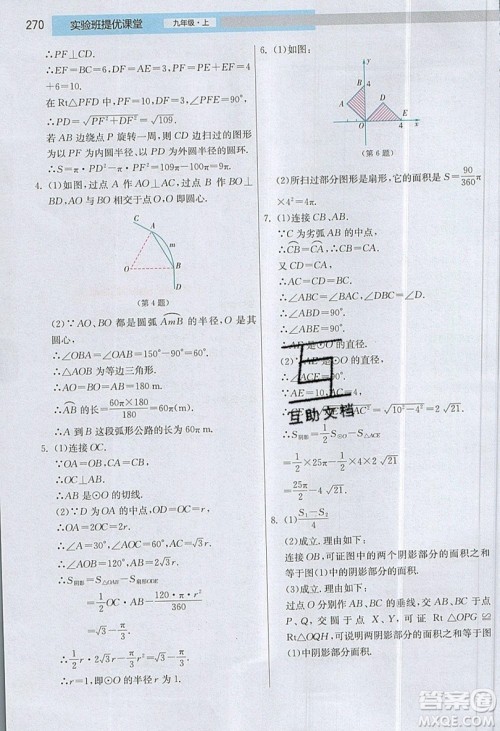 270 实验班提优课堂 九年级·上
∴PF⊥CD.
∴DF=DM+FM=AE+PE=4
+6=10.
在 Rt△PFD 中,PF=PE=3,
∴PD=√PF²+DF²=√109.
若 AB 边绕点 P 旋转一周,则 CD 边扫过的图形
为以 PF 为内圆半径、以 PD 为外圆半径的圆环.
∴S=π·PD²-π·PF²=109π-9π=100π.
4. (1)如图,过点 A 作 AO⊥AC,过点 B 作 BO⊥
BD,AO 与 BO 相交于点 O,点 O 即圆心.
C
A
m
O
B
D
(第 4 题)
(2)∵AO、BO 都是圆弧 AmB 的半径,O 是其
圆心,
∴∠OBA=∠OAB=60°.
∴△AOB 为等边三角形.
∴AB=AO=BO=180.
∴AB=60π×180/180=60π(m).
∴A 到 B 这段弧形公路的长为60πm.
5. (1)连接OC.
∵OA=OB,CA=CB,
∴OC⊥AB.
∴AB 是⊙O 的切线.
(2)∵D 为OA 的中点,
∴OD=OC=r.
∴OA=2OC=2r.
∴∠A=30°,
∠AOC=60°,AC=√3r.
∴∠AOB=120°,AB=2√3r.
∴S阴影=S△OAB-S扇形ODE
=1/2·OC·AB-120·π·r²/360
=√3r²-π/3r².
∴√3r²-1/3πr²=√3-π/3.
∴r²=1.
∴r=1,即⊙O 的半径r 为1.
6. (1)如图:
B
4
D
A
C
4
E
x
(第 6 题)
(2)所扫过部分图形是扇形,它的面积是 S=90/360π
×4²=4π.
7. (1)连接 CB、AB.
∵C 为劣弧 AB 的中点,
∴CB=CA.
又 CD=CA,
∴AC=CD=BC.
∴∠ABD=90°.
∴∠ABE=90°.
∴AE是⊙O 的直径.
(2)∵AE是⊙O 的直径,
∴∠ACE=90°.
∵AE=10,AC=4,
√10²-4²=2√21.
∴S阴影=1/2S⊙O-S△ACE
=1/2×25π-1/2×4×2√21
=25π/2-4√21.
8. (1)S₁-S₂/4
(2)成立. 理由如下:
连接 OB,可证图中的两个阴影部分的面积之和
等于图(1)中阴影部分的面积.
(3)成立. 理由如下:
过点 O 分别作 AB、BC 的垂线,交大正方形于
点 P、Q,垂足分别为 G、H,可证 Rt△OPG≌
Rt△OQH,可说明两个阴影部分的面积之和等于图
(1)中阴影部分面积.
互助文档
答案圈
MXQE.COM